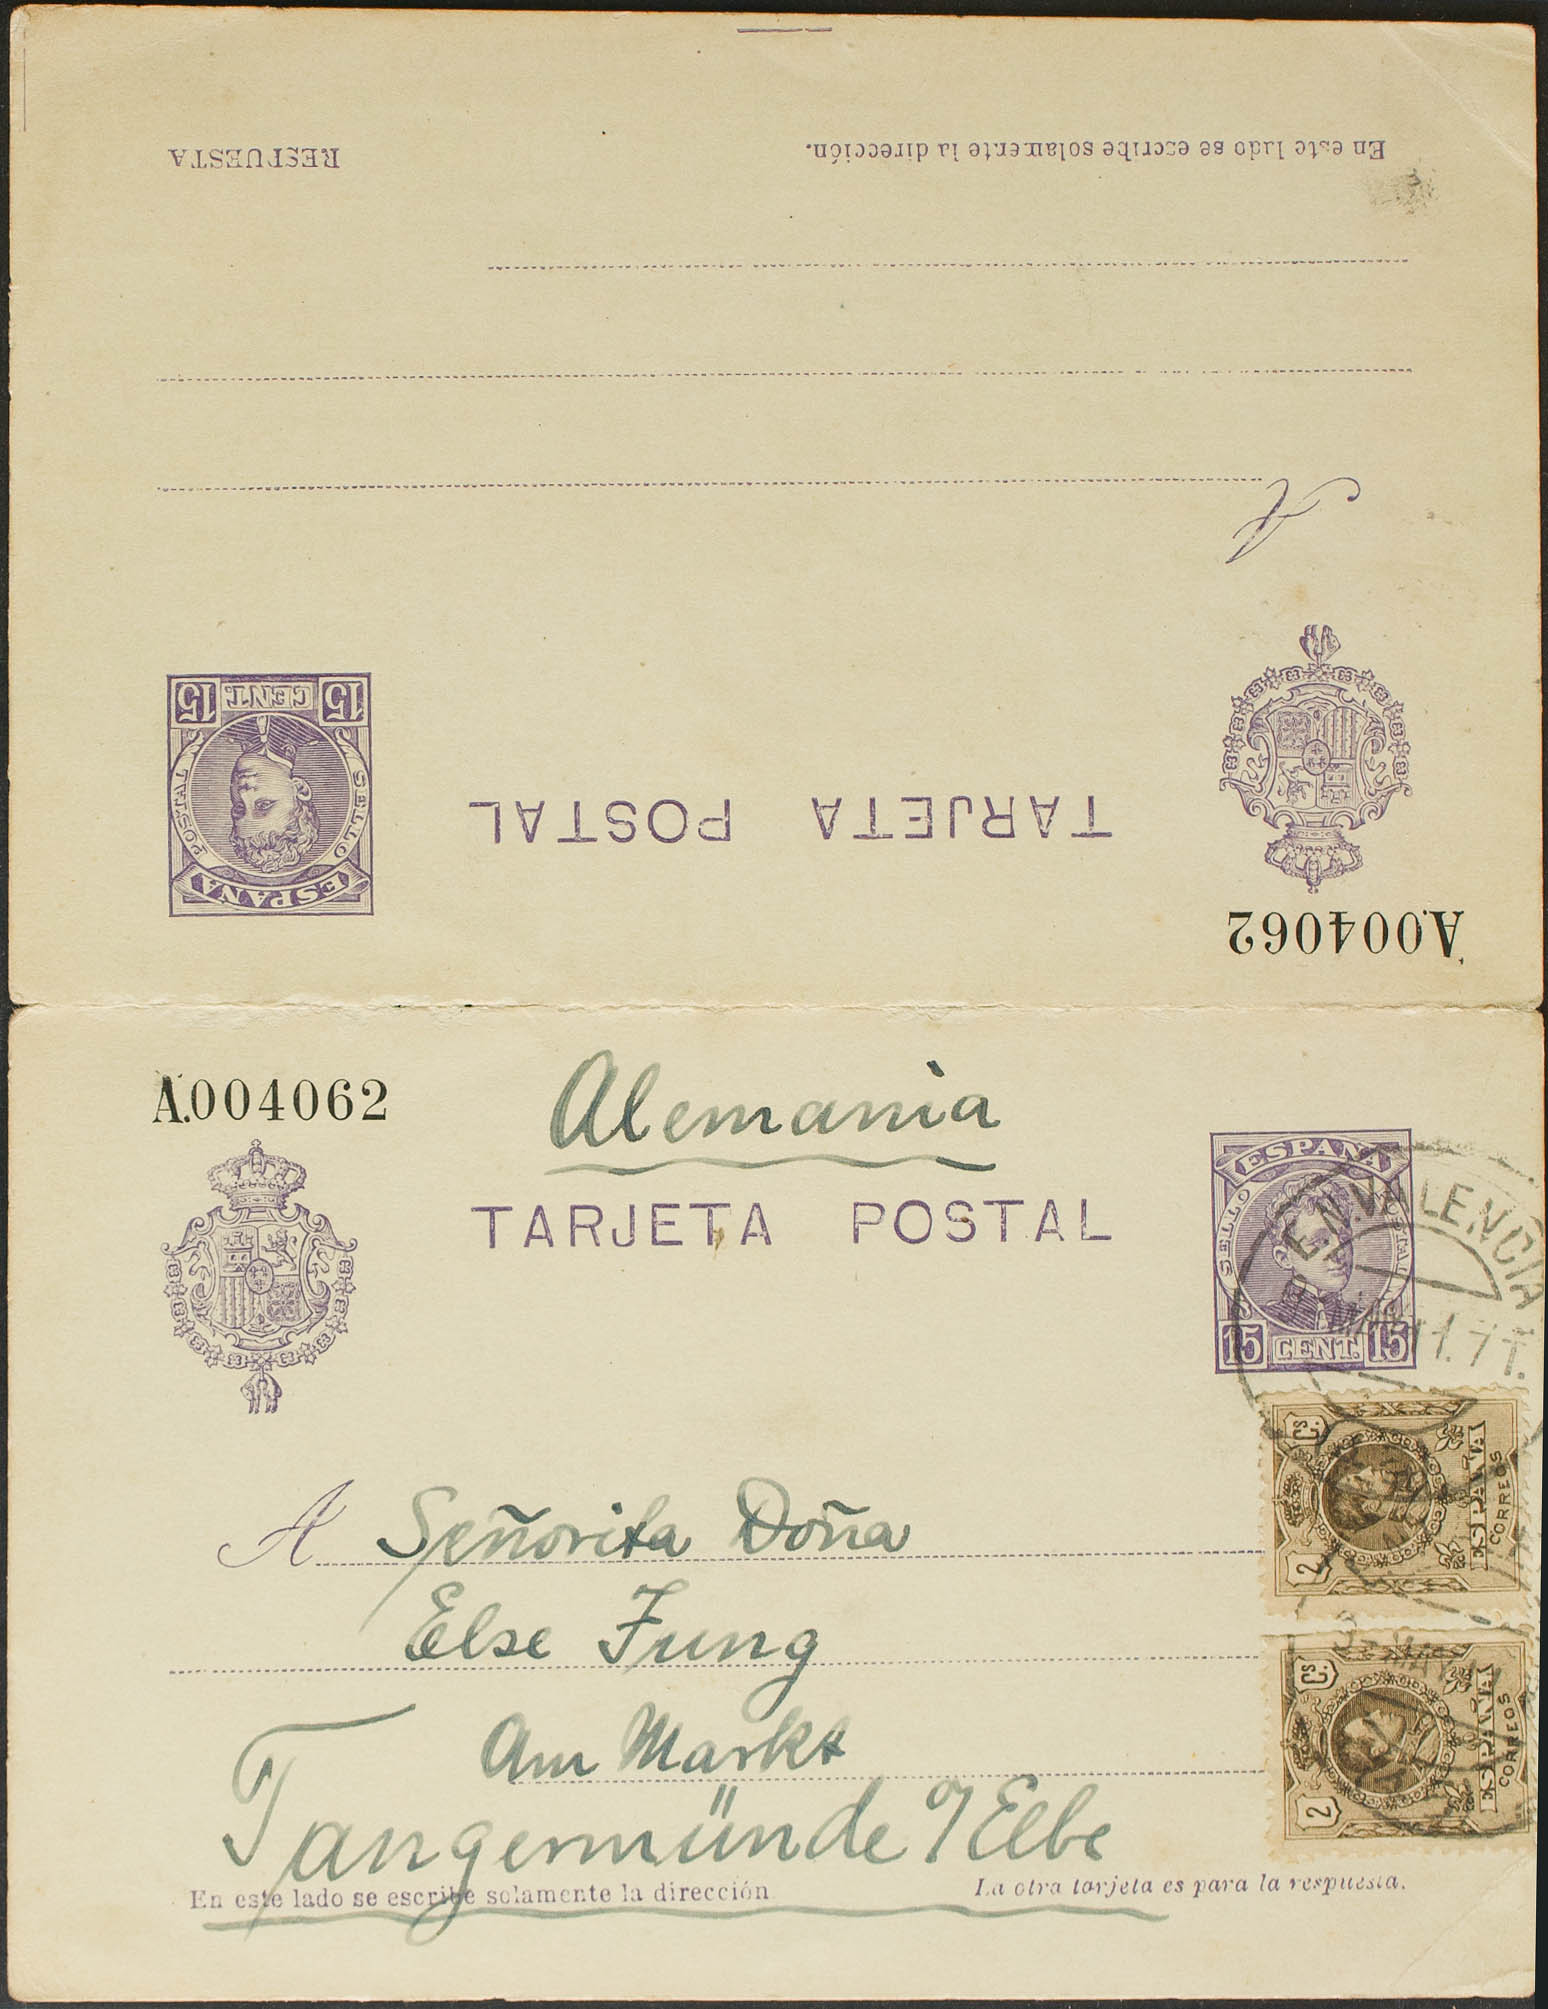 RESPUESTA
En este lado se escribe solamente la dirección.
A
15 CENT. 15
SELLO POSTAL
ESPAÑA
TARJETA POSTAL
A.004062
A.004062
Alemania
TARJETA POSTAL
ESPAÑA
SELLO POSTAL
15 CENT. 15
VALENCIA
A Señorita Doña
Else Jung
Am Markt
Tangermünde a/Elbe
2 Cs.
ESPAÑA
CORREOS
2 Cs.
ESPAÑA
CORREOS
En este lado se escribe solamente la dirección
La otra tarjeta es para la respuesta.